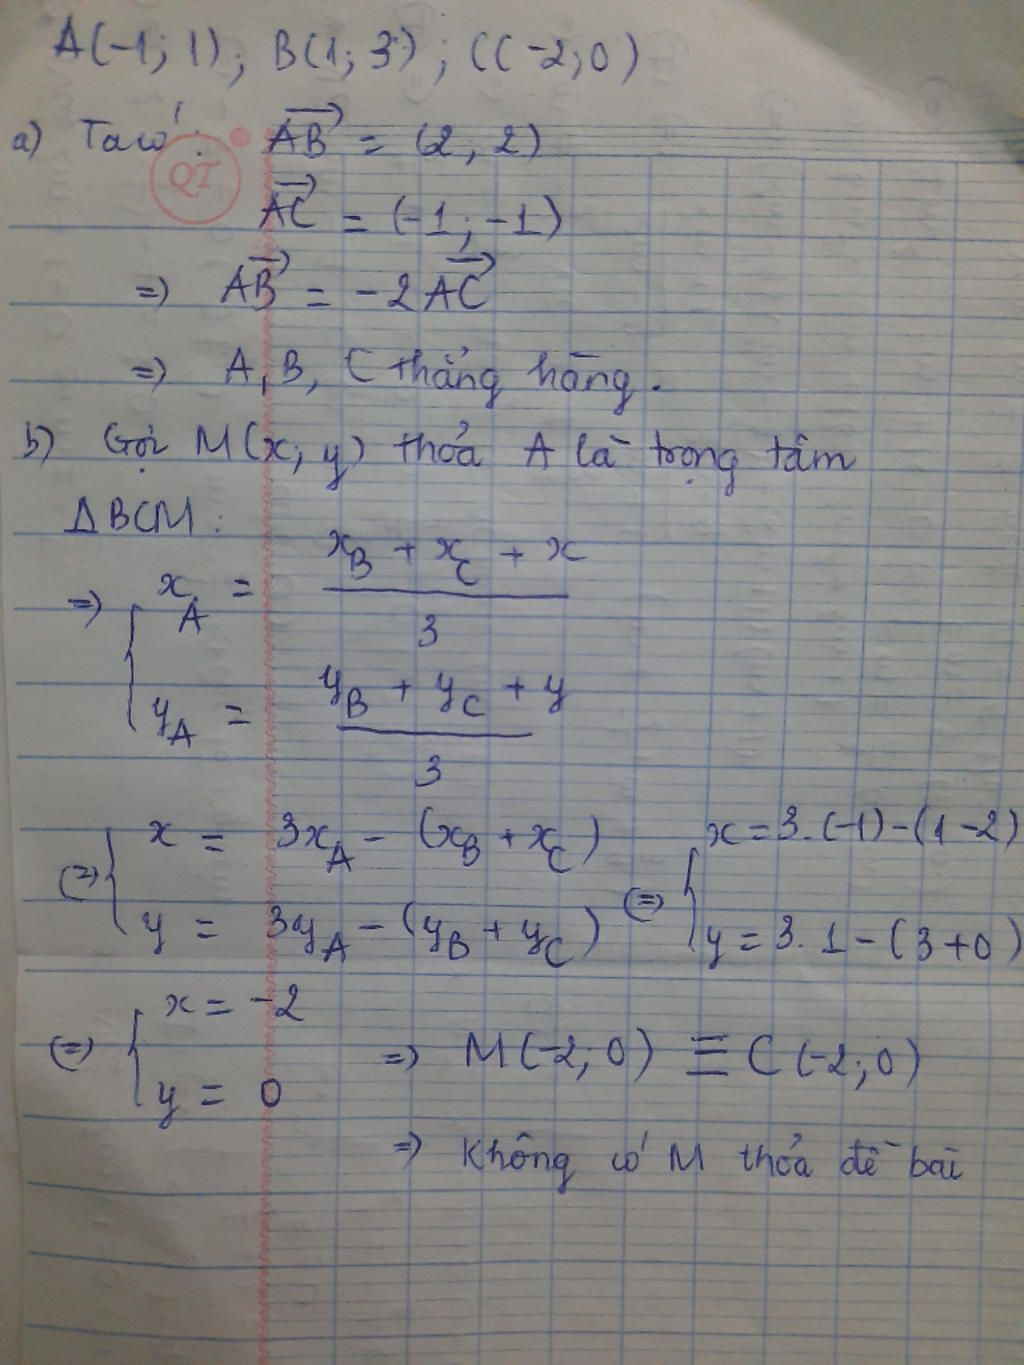 A(-1; 1); B(1; 3); C(-2; 0)
a) Ta có: AB = (2, 2)
QT
AC = (-1; -1)
=> AB = -2AC
=> A, B, C thẳng hàng.
b) Gọi M(x; y) thỏa A là trọng tâm
ΔBCM:
=> { x_A = (x_B + x_C + x) / 3
y_A = (y_B + y_C + y) / 3
(=) { x = 3x_A - (x_B + x_C) (=) { x = 3.(-1) - (1-2)
y = 3y_A - (y_B + y_C) y = 3.1 - (3+0)
(=) { x = -2
y = 0 => M(-2; 0) ≡ C(-2; 0)
=> Không có M thỏa đề bài